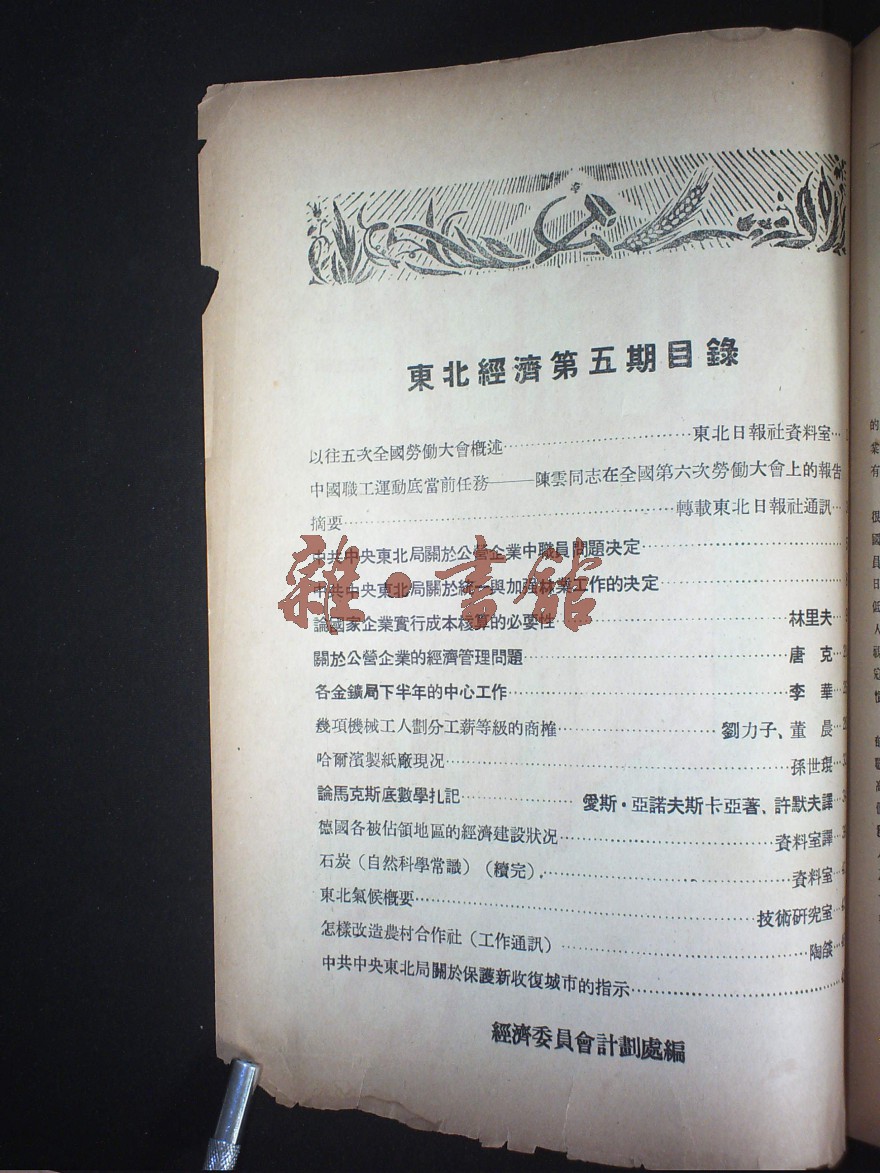 東北經濟第五期目錄
以往五次全國勞働大會概述……東北日報社資料室…1
中國職工運動底當前任務——陳雲同志在全國第六次勞働大會上的報告
摘要……轉載東北日報社通訊…
中共中央東北局關於公營企業中職員問題決定……
中共中央東北局關於統一與加强林業工作的決定……
論國家企業實行成本核算的必要性……林里夫…
關於公營企業的經濟管理問題……唐 克…
各金鑛局下半年的中心工作……李 華…
幾項機械工人劃分工薪等級的商榷……劉力子、董 晨…
哈爾濱製紙廠現况……孫世琨…
論馬克斯底數學扎記……愛斯·亞諾夫斯卡亞著、許默夫譯…
德國各被佔領地區的經濟建設狀况……資料室譯…
石炭（自然科學常識）（續完）……資料室…
東北氣候概要……技術研究室…
怎樣改造農村合作社（工作通訊）……陶燄…
中共中央東北局關於保護新收復城市的指示……
經濟委員會計劃處編
雜·書館